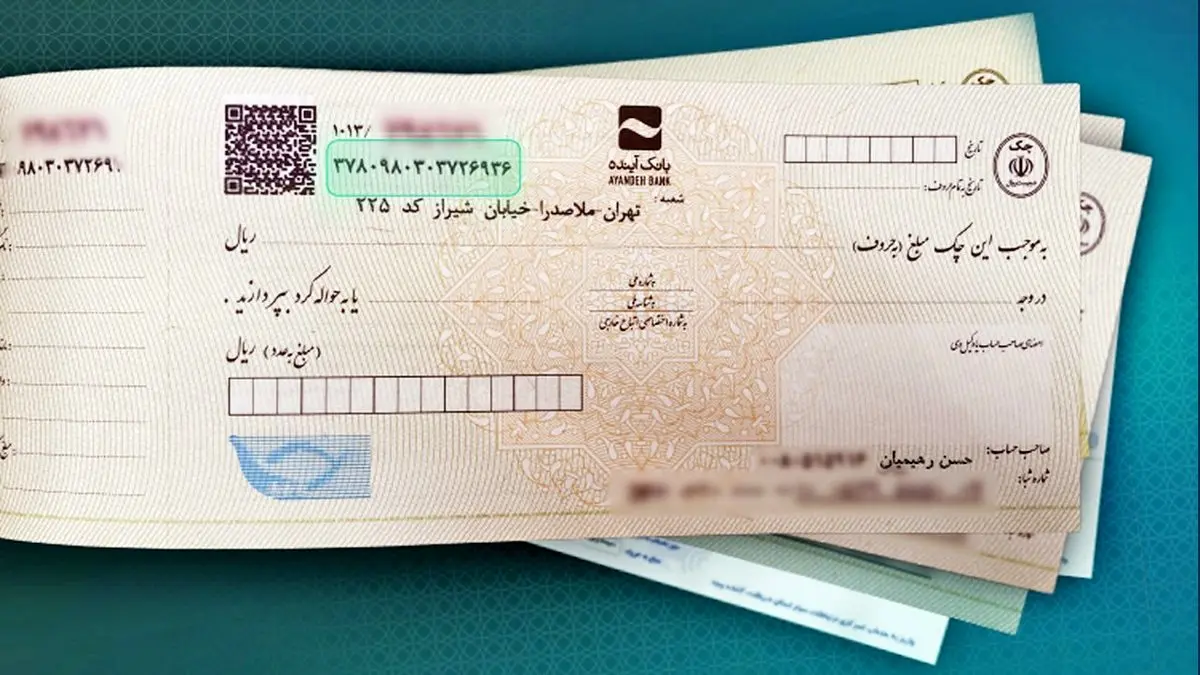 ۱۰۱۳/
۳۷۸۰۹۸۰۳۰۳۷۲۶۹۳۶
۹۸۰۳۰۳۷۲۶۹
بانک آینده
AYANDEH BANK
شعبه:
تهران-ملاصدرا-خیابان شیراز کد ۲۲۵
چک
تاریخ
تاریخ به تمام حروف:
به موجب این چک مبلغ (به حروف)
ریال
در وجه
به شماره ملی
به شناسه ملی
به شماره اختصاصی اتباع خارجی
یا به حواله کرد بپردازید.
(مبلغ به عدد) ریال
امضای صاحب حساب یا وکیل وی
صاحب حساب: حسن رهیمیان
شماره شبا: